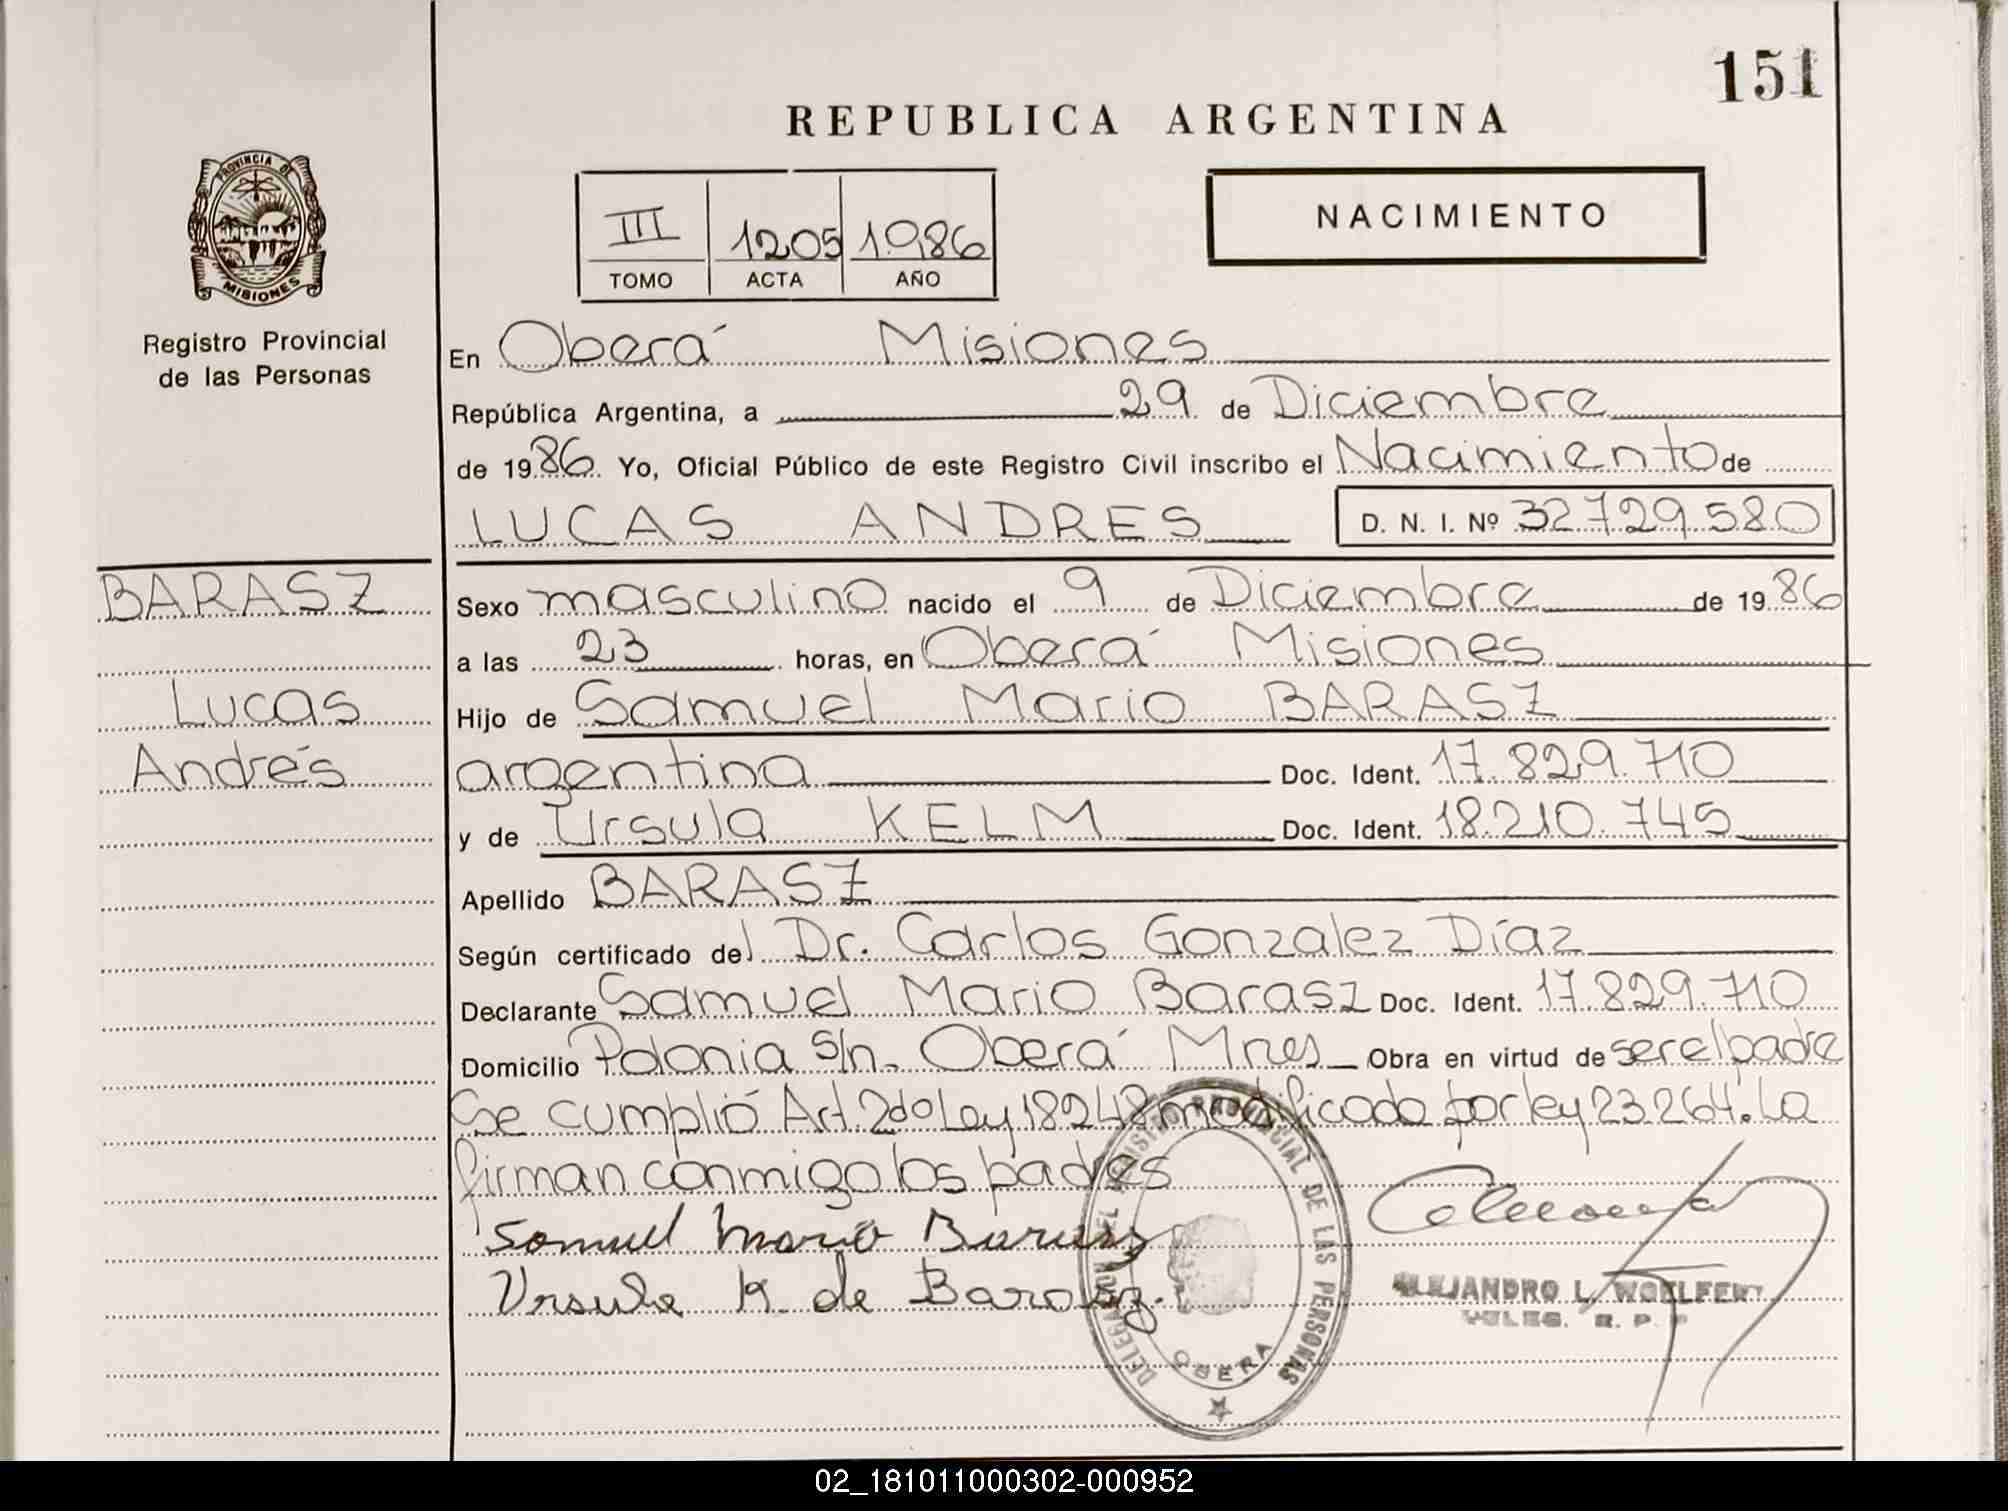 151
REPUBLICA ARGENTINA
PROVINCIA DE
MISIONES
Registro Provincial
de las Personas
III 1205 1986
TOMO ACTA AÑO
NACIMIENTO
En Oberá Misiones
República Argentina, a 29 de Diciembre
de 1986 Yo, Oficial Público de este Registro Civil inscribo el Nacimiento de
LUCAS ANDRES D. N. I. Nº 32729580
BARASZ
Lucas
Andrés
Sexo masculino nacido el 9 de Diciembre de 1986
a las 23 horas, en Oberá Misiones
Hijo de Samuel Mario BARASZ
argentina Doc. Ident. 17.829.710
y de Ursula KELM Doc. Ident. 18.210.745
Apellido BARASZ
Según certificado del Dr. Carlos Gonzalez Díaz
Declarante Samuel Mario Barasz Doc. Ident. 17.829.710
Domicilio Polonia s/n. Oberá Mnes Obra en virtud de ser el padre
Se cumplió Art. 2do Ley 18248 modificada por ley 23.264. La
firman conmigo los padres
Samuel Mario Barasz
Ursula K. de Barasz.
DELEGACION DEL REGISTRO PROVINCIAL DE LAS PERSONAS
OBERA
ALEJANDRO L. WOELFERT
R. P. P
02_181011000302-000952